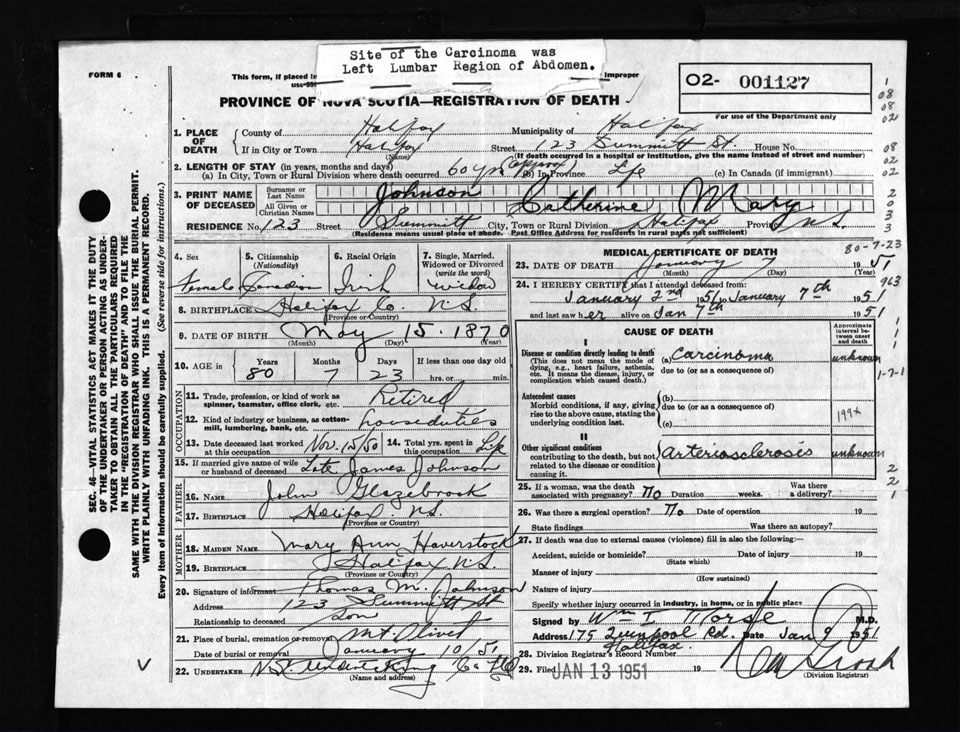 Site of the Carcinoma was
Left Lumbar Region of Abdomen.
FORM 6
This form, if placed in Improper
O2- 001127
For use of the Department only
PROVINCE OF NOVA SCOTIA—REGISTRATION OF DEATH
1. PLACE OF DEATH
County of Halifax Municipality of Halifax
If in City or Town Halifax (Name) Street 123 Summitt St. House No.
(If death occurred in a hospital or institution, give the name instead of street and number)
2. LENGTH OF STAY (in years, months and days)
(a) In City, Town or Rural Division where death occurred 60 yrs (approx) (b) In Province Life (c) In Canada (if immigrant)
3. PRINT NAME OF DECEASED
Surname or Last Name Johnson
All Given or Christian Names Catherine Mary
RESIDENCE No. 123 Street Summitt City, Town or Rural Division Halifax Province N.S.
(Residence means usual place of abode. Post Office Address for residents in rural parts not sufficient)
4. Sex Female
5. Citizenship (Nationality) Canadian
6. Racial Origin Irish
7. Single, Married, Widowed or Divorced (write the word) Widow
8. BIRTHPLACE Halifax Co N.S.
(Province or Country)
9. DATE OF BIRTH May 15. 1870
(Month) (Day) (Year)
10. AGE in Years 80 Months 7 Days 23 If less than one day old hrs. or min.
OCCUPATION
11. Trade, profession, or kind of work as spinner, teamster, office clerk, etc. Retired
12. Kind of industry or business, as cotton-mill, lumbering, bank, etc. houseduties
13. Date deceased last worked at this occupation Nov. 15/50
14. Total yrs. spent in this occupation Life
15. If married give name of wife or husband of deceased Late James Johnson
FATHER
16. Name John Glazebrook
17. Birthplace Halifax N.S.
(Province or Country)
MOTHER
18. MAIDEN NAME Mary Ann Haverstock
19. BIRTHPLACE Halifax N.S.
(Province or Country)
20. Signature of informant Thomas M. Johnson
Address 123 Summitt St
Relationship to deceased Son
21. Place of burial, cremation or removal Mt. Olivet
Date of burial or removal January 10/51
22. UNDERTAKER N.S. Undertaking Co
(Name and address)
MEDICAL CERTIFICATE OF DEATH
80-7-23
23. DATE OF DEATH January 7 1951
(Month) (Day) (Year)
24. I HEREBY CERTIFY that I attended deceased from:
January 2nd 1951 to January 7th 1951
and last saw her alive on Jan 7th 1951
CAUSE OF DEATH
Approximate interval between onset and death
I
Disease or condition directly leading to death
(This does not mean the mode of dying, e.g., heart failure, asthenia, etc. It means the disease, injury, or complication which caused death.)
(a) Carcinoma unknown
due to (or as a consequence of)
Antecedent causes
Morbid conditions, if any, giving rise to the above cause, stating the underlying condition last.
(b)
due to (or as a consequence of)
(c)
199x
1-7-1
II
Other significant conditions
contributing to the death, but not related to the disease or condition causing it.
Arteriosclerosis unknown
25. If a woman, was the death associated with pregnancy? No Duration weeks. Was there a delivery?
26. Was there a surgical operation? No Date of operation 19
State findings Was there an autopsy?
27. If death was due to external causes (violence) fill in also the following:—
Accident, suicide or homicide? Date of injury 19
(State which)
Manner of injury
(How sustained)
Nature of injury
Specify whether injury occurred in industry, in home, or in public place
Signed by Wm I. Morse M.D.
Address 175 Quinpool Rd. Date Jan 9 1951
Halifax.
28. Division Registrar's Record Number
29. Filed JAN 13 1951 19
(Division Registrar)
SEC. 46—VITAL STATISTICS ACT MAKES IT THE DUTY
OF THE UNDERTAKER OR PERSON ACTING AS UNDER-
TAKER TO OBTAIN ALL THE PARTICULARS REQUIRED
IN THE "REGISTRATION OF DEATH" AND TO FILE THE
SAME WITH THE DIVISION REGISTRAR WHO SHALL ISSUE THE BURIAL PERMIT.
WRITE PLAINLY WITH UNFADING INK. THIS IS A PERMANENT RECORD.
Every item of information should be carefully supplied. (See reverse side for instructions.)
1
08
08
02
08
02
02
2
0
3
3
963
1
1
1
2
2
1